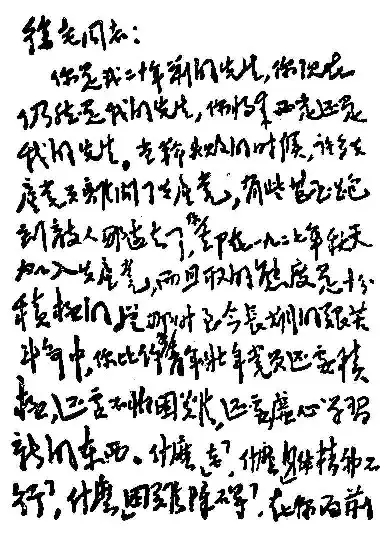 徐老同志：
你是我二十年前的先生，你现在
仍然是我的先生，你将来必定还是
我的先生。当革命失败的时候，许多共
產党员離開了共產党，有些甚至跑
到敌人那边去了，你却在一九二七年秋天
加入共產党，而且取的態度是十分
積極的。從那时至今長期的艰苦
斗争中，你比许多青年壮年党员还要積
極，还要不怕困难，还要虚心学習
新的東西。什麽“老”，什麽“身体精神不
行”，什麽“困难障碍”，在你面前